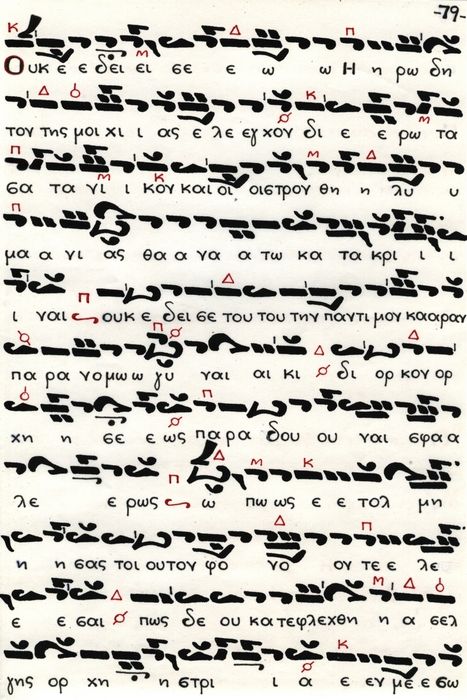 -79-
Ουκ ε ε δει ει σε ε ω ω Η η ρω δη
τον της μοι χι ι ας ε λε εγ χον δι ε ε ρω τα
σα τα νι ι κον και οι οιστρον θη η λυ υ
μα α νι ας θα α να α τω κα τα κρι ι ι
ι ναι ουκ ε δει σε του του την παντι μον κα αραν
πα ρα νο μω ω γυ ναι αι κι δι ορ κον ορ
χη η σε ε ως πα ρα δου ου ναι σφα α
λε ε ρως ω πω ως ε ε τολ μη
η η σας τοι ουτον φο νο ον τε ε λε
ε ε σαι πως δε ου κα τεφλεχθη η α σελ
γης ορ χη η στρι ι α ε εν με ε σω